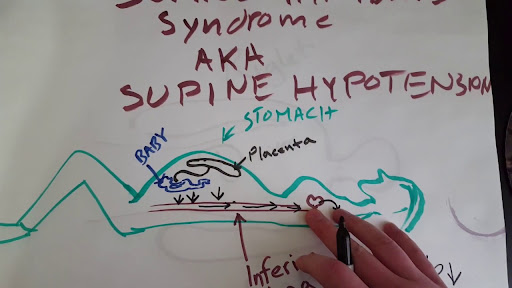 Syndrome
AKA
SUPINE HYPOTENSION
STOMACH
BABY
Placenta